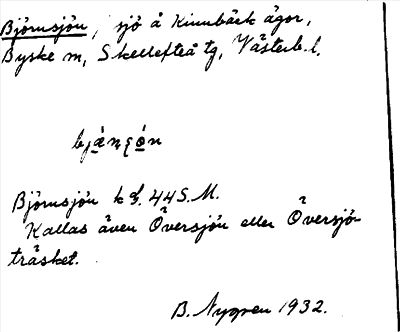 Björnsjön, sjö å Kinnbäck ägor,
Byske sn, Skellefteå tg, Västerb. l.
Björnsjön 44 S.M.
Kallas även Översjön eller Översjö-
träsket.
B. Nygren 1932.